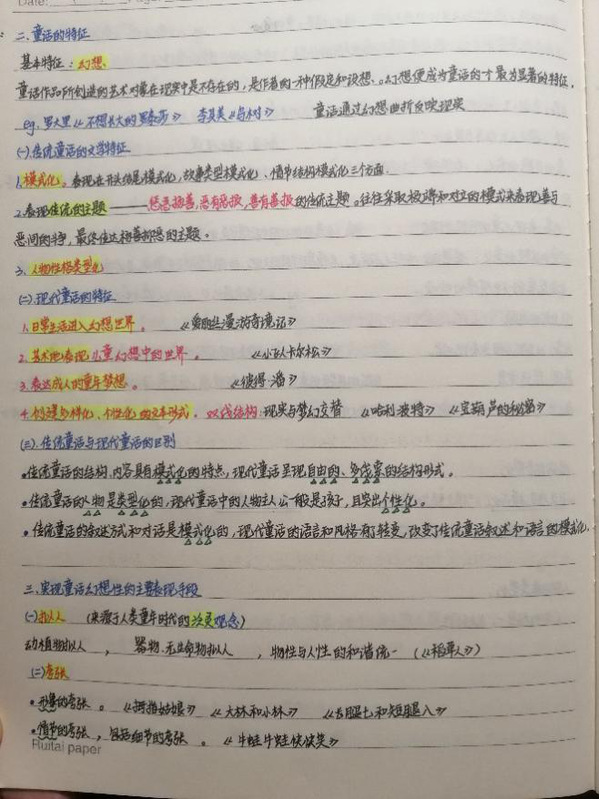 Date:
二.童话的特征
基本特征：幻想.
童话作品所创造的艺术对象在现实中是不存在的，是作者的一种假定和设想。幻想便成为童话的一个最为显著的特征.
eg. 罗大里《不想长大的罗泰莎》 李其美《鸟树》 童话通过幻想曲折反映现实
(一).传统童话的文学特征
1.模式化。表现在开头结尾模式化，故事类型模式化、情节结构模式化三个方面.
2.表现传统的主题——惩恶扬善，恶有恶报，善有善报的传统主题。往往采取极端和对立的模式来表现善与
恶间的斗争，最终传达扬善抑恶的主题。
3.人物性格类型化
(二).现代童话的特征
1.日常生活进入幻想世界。 《爱丽丝漫游奇境记》
2.艺术地表现儿童幻想中的世界。 《小飞人卡尔松》
3.表达成人的童年梦想。 《彼得·潘》
4.创造多样化、个性化的文本形式。双线结构：现实与梦幻交替 《哈利波特》《宝葫芦的秘密》
(三).传统童话与现代童话的区别
•传统童话的结构、内容具有模式化的特点，现代童话呈现自由的、多线索的结构形式。
•传统童话的人物是类型化的，现代童话中的人物主人公一般是孩子，且突出个性化。
•传统童话的叙述方式和对话是模式化的，现代童话的语言和风格有了转变，改变了传统童话叙述和语言的模式化.
三.实现童话幻想性的主要表现手段
(一)拟人 （来源于人类童年时代的泛灵观念）
动植物拟人， 器物、无生命物拟人 ，物性与人性的和谐统一（《稻草人》）
(二)夸张
•形象的夸张。《拇指姑娘》《大林和小林》《长腿七和短腿八》
•情节的夸张，包括细节的夸张。《牛蛙牛蛙侠侠笑》
Ruitai paper